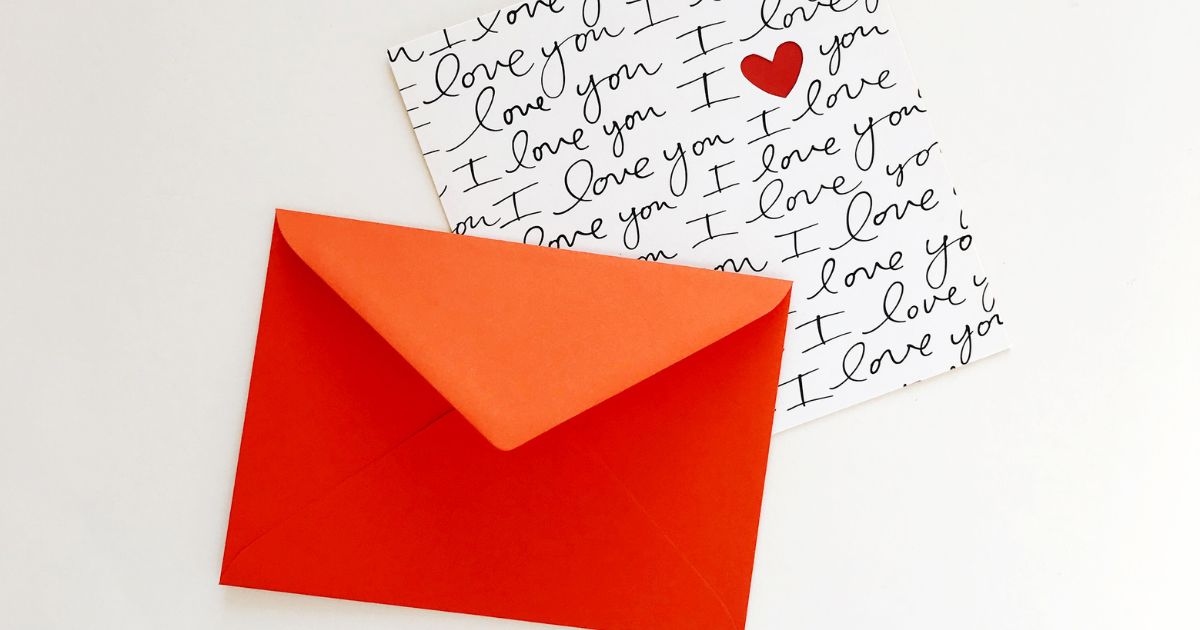 I love y
I love you I
love you I love y
I love you I ♥ you
ou I love you I love
love you I love you
ou I love yo
ou I love
love yo
I love y
I love you